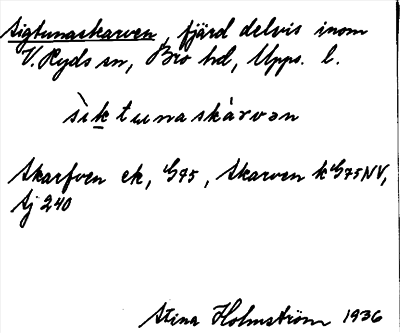 Sigtunaskarven, fjärd delvis inom
V. Ryds sn, Bro hd, Upps. l.
sìktunaskàrvən
Skarfven ek, G75, Skarven k G75NV,
Sj 240
Stina Holmström 1936